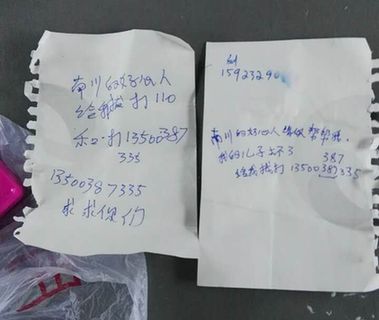 南川的好心人
给我拨打110
和二打13500387
335
13500387335
求求你们
15923290
南川的好心人请你帮帮我.
我的儿子出不了
387
给我拨打13500387335